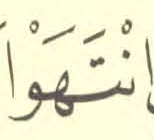 انْتَهَوْا